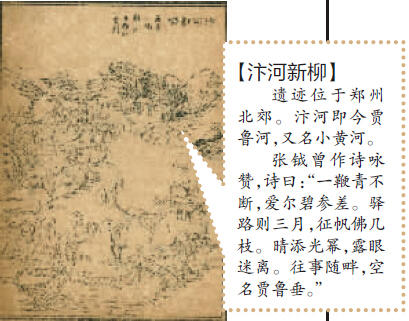 【汴河新柳】
遗迹位于郑州
北郊。汴河即今贾
鲁河，又名小黄河。
张钺曾作诗咏
赞，诗曰：“一鞭青不
断，爱尔碧参差。驿
路则三月，征帆佛几
枝。晴添光幂，露眼
迷离。往事随畔，空
名贾鲁垂。”